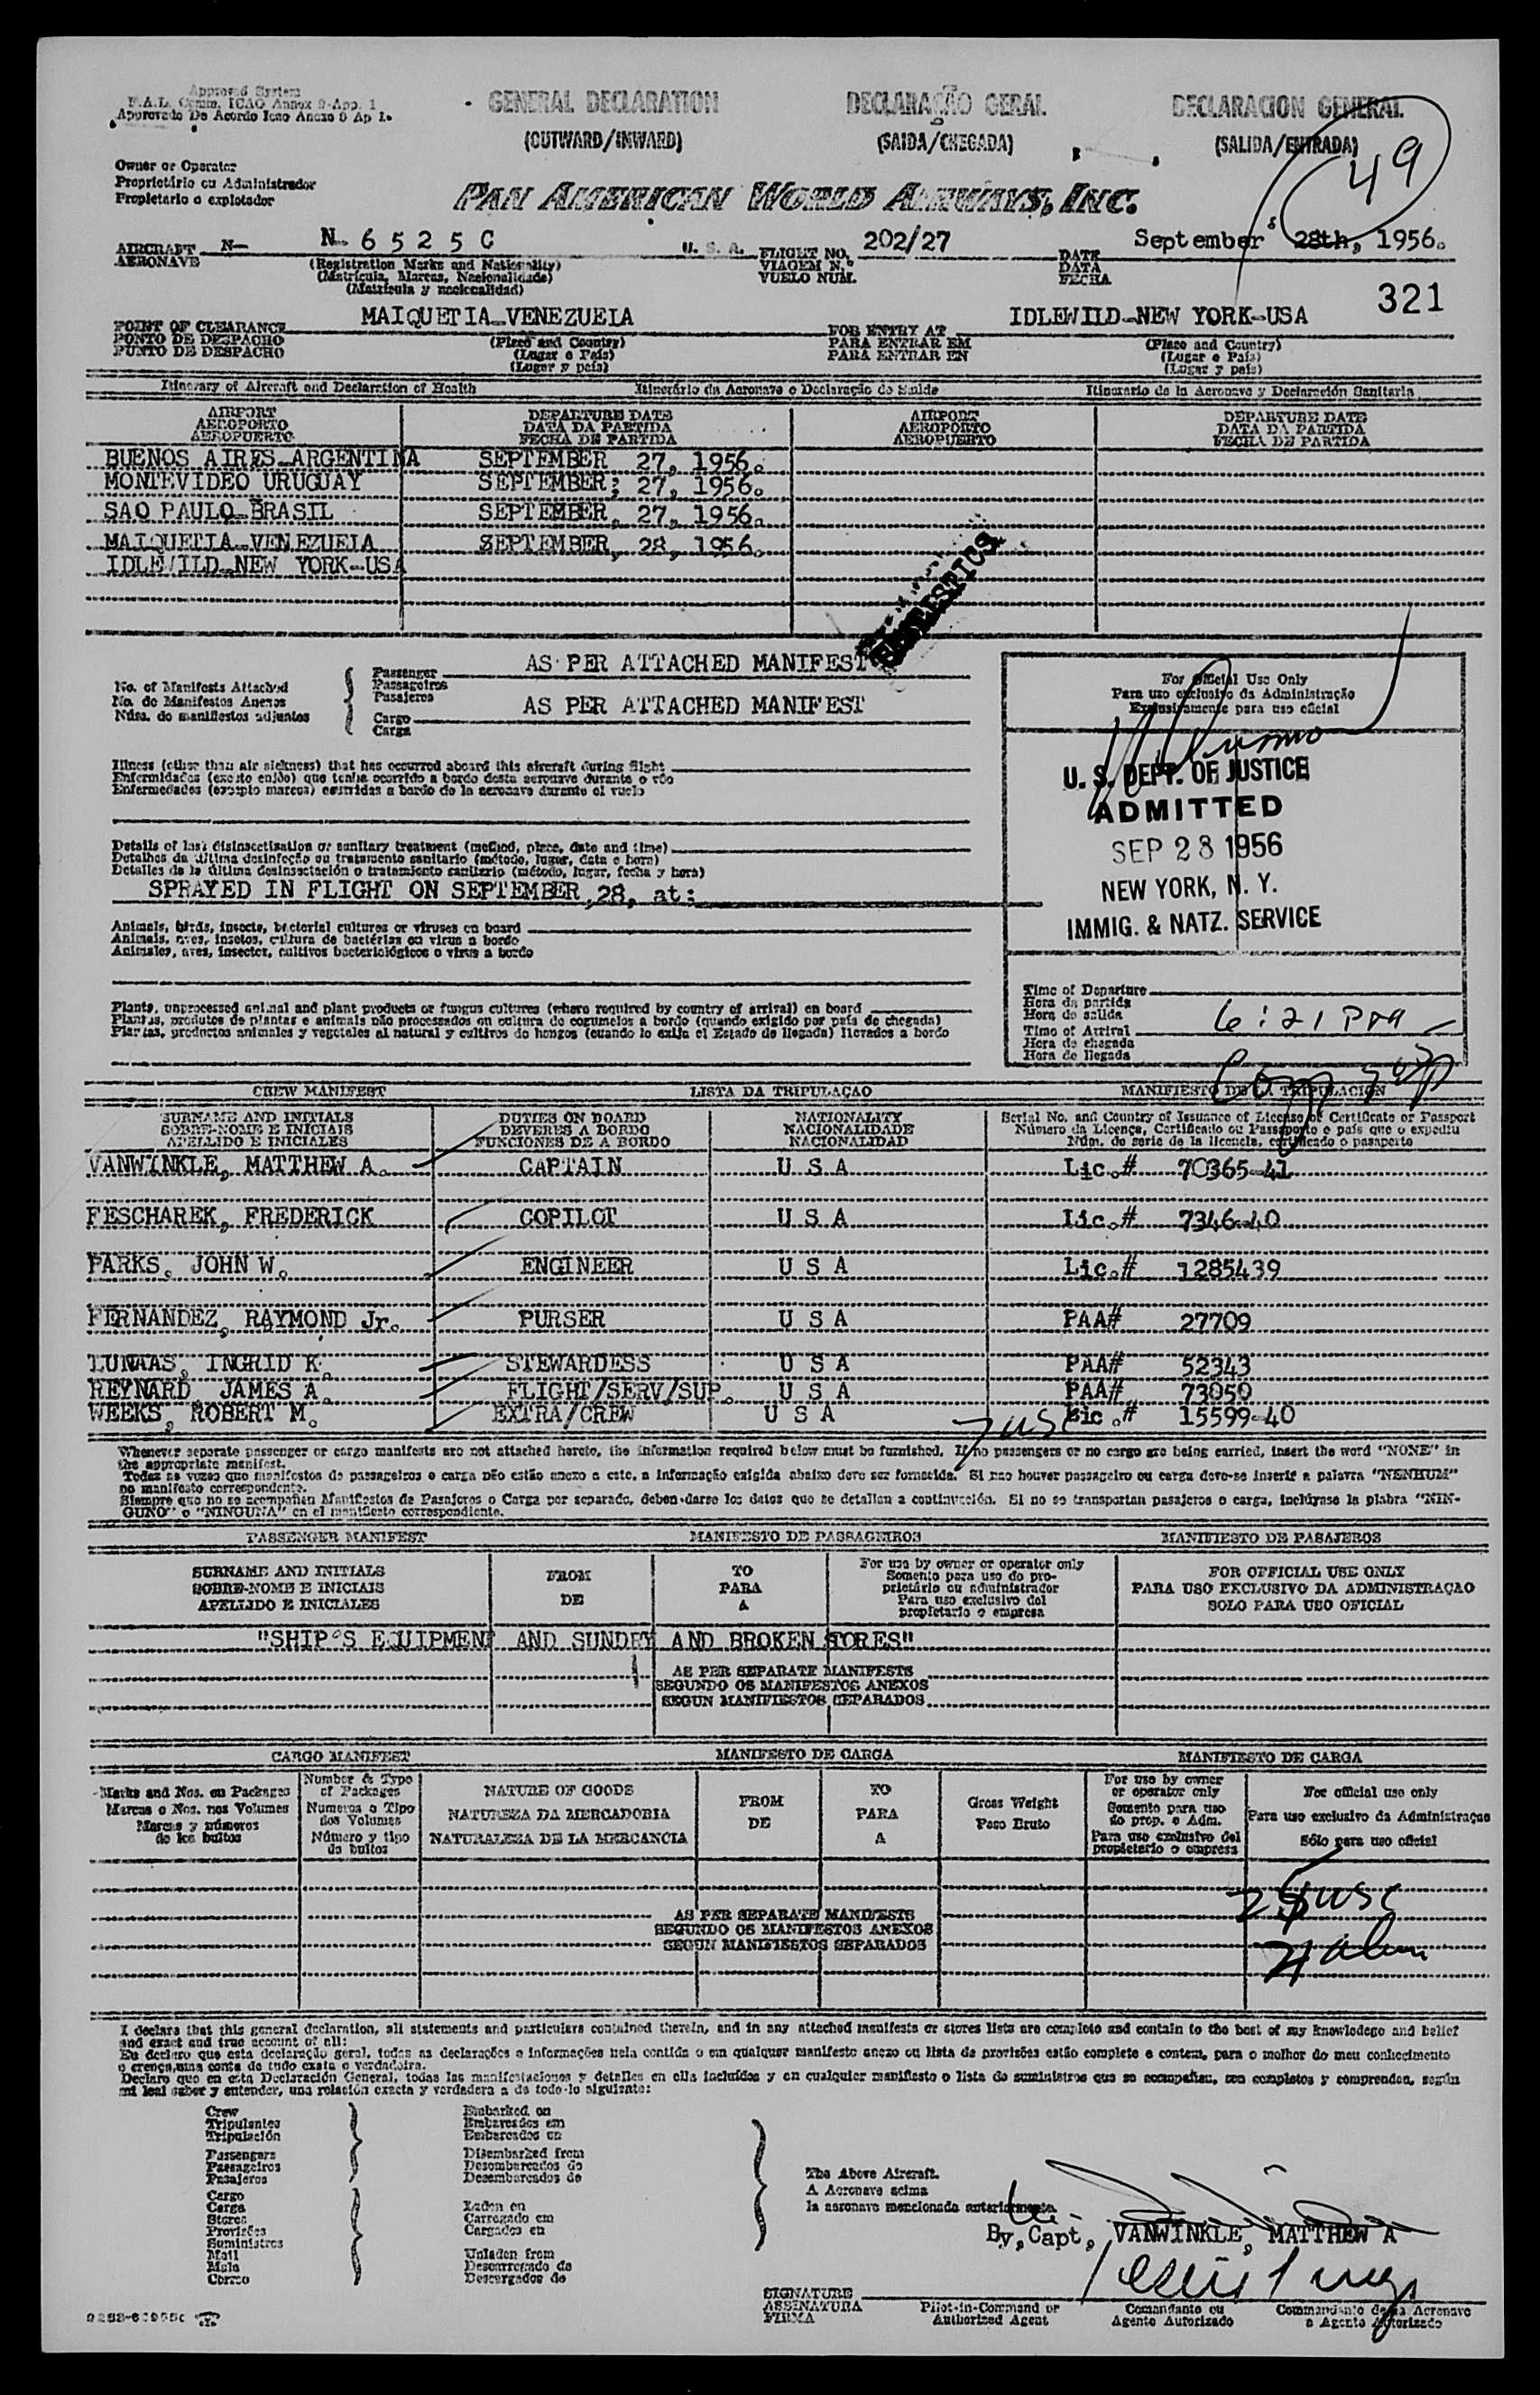 Approved System
F.A.L. Comm. ICAO Annex 9-App. 1
Aprovado De Acordo Icao Anexo 9 Ap 1.
GENERAL DECLARATION DECLARAÇÃO GERAL DECLARACION GENERAL
(OUTWARD/INWARD) (SAIDA/CHEGADA) (SALIDA/ENTRADA)
49
Owner or Operator
Proprietário ou Administrador
Propietario o explotador
PAN AMERICAN WORLD AIRWAYS, INC.
AIRCRAFT N- N- 6 5 2 5 C U. S. A. FLIGHT NO. 202/27 DATE September 28th, 1956.
AERONAVE (Registration Marks and Nationality) VIAGEM N.º DATA
(Matrícula, Marcas, Nacionalidade) VUELO NUM. FECHA
(Matrícula y nacionalidad)
321
POINT OF CLEARANCE MAIQUETIA-VENEZUELA FOR ENTRY AT IDLEWILD-NEW YORK-USA
PONTO DE DESPACHO (Place and Country) PARA ENTRAR EM (Place and Country)
PUNTO DE DESPACHO (Lugar e País) PARA ENTRAR EN (Lugar e País)
(Lugar y país) (Lugar y país)
Itinerary of Aircraft and Declaration of Health Itinerário da Aeronave e Declaração de Saúde Itinerario de la Aeronave y Declaración Sanitaria
AIRPORT DEPARTURE DATE AIRPORT DEPARTURE DATE
AEROPORTO DATA DA PARTIDA AEROPORTO DATA DA PARTIDA
AEROPUERTO FECHA DE PARTIDA AEROPUERTO FECHA DE PARTIDA
BUENOS AIRES-ARGENTINA SEPTEMBER 27, 1956.
MONTEVIDEO URUGUAY SEPTEMBER; 27, 1956.
SAO PAULO-BRASIL SEPTEMBER, 27, 1956.
MAIQUETIA-VENEZUELA SEPTEMBER, 28, 1956.
IDLEWILD-NEW YORK-USA
STATISTICS
No. of Manifests Attached
No. de Manifestos Anexos
Núm. de manifiestos adjuntos
Passenger AS PER ATTACHED MANIFEST
Passageiros
Pasajeros
Cargo AS PER ATTACHED MANIFEST
Carga
For Official Use Only
Para uso exclusivo da Administração
Exclusivamente para uso oficial
U. S. DEPT. OF JUSTICE
ADMITTED
SEP 28 1956
NEW YORK, N. Y.
IMMIG. & NATZ. SERVICE
Illness (other than air sickness) that has occurred aboard this aircraft during flight
Enfermidades (exceto enjôo) que tenha ocorrido a bordo desta aeronave durante o vôo
Enfermedades (excepto mareos) ocurridas a bordo de la aeronave durante el vuelo
Details of last disinsectisation or sanitary treatment (method, place, date and time)
Detalhes da última desinfeção ou tratamento sanitario (método, lugar, data e hora)
Detalles de la última desinsectación o tratamiento sanitario (método, lugar, fecha y hora)
SPRAYED IN FLIGHT ON SEPTEMBER, 28, at:
Animals, birds, insects, bacterial cultures or viruses on board
Animais, aves, insetos, cultura de bactérias ou virus a bordo
Animales, aves, insectos, cultivos bacteriológicos o virus a bordo
Plants, unprocessed animal and plant products or fungus cultures (where required by country of arrival) on board
Plantas, produtos de plantas e animais não processados ou cultura de cogumelos a bordo (quando exigido por país de chegada)
Plantas, productos animales y vegetales al natural y cultivos de hongos (cuando lo exija el Estado de llegada) llevados a bordo
Time of Departure
Hora da partida
Hora de salida
Time of Arrival 6:21 PM
Hora de chegada
Hora de llegada
CREW MANIFEST LISTA DA TRIPULAÇAO MANIFIESTO DE LA TRIPULACION
SURNAME AND INITIALS DUTIES ON BOARD NATIONALITY Serial No. and Country of Issuance of License or Certificate or Passport
SOBRE-NOME E INICIAIS DEVERES A BORDO NACIONALIDADE Número da Licença, Certificado ou Passaporte e país que o expediu
APELLIDO E INICIALES FUNCIONES DE A BORDO NACIONALIDAD Núm. de serie de la licencia, certificado o pasaporte
VANWINKLE, MATTHEW A. CAPTAIN U S A Lic.# 70365-41
FESCHAREK, FREDERICK COPILOT U S A Lic.# 7346-40
PARKS, JOHN W. ENGINEER U S A Lic.# 1285439
FERNANDEZ, RAYMOND Jr. PURSER U S A PAA# 27709
LUNAAS, INGRID K. STEWARDESS U S A PAA# 52343
REYNARD JAMES A. FLIGHT/SERV/SUP. U S A PAA# 73050
WEEKS, ROBERT M. EXTRA/CREW U S A Lic.# 15599-40
7 USC
Whenever separate passenger or cargo manifests are not attached hereto, the information required below must be furnished. If no passengers or no cargo are being carried, insert the word "NONE" in
the appropriate manifest.
Todas as vezes que manifestos de passageiros e carga não estão anexo a este, a informação exigida abaixo deve ser fornecida. Si nao houver passageiro ou carga deve-se inserir a palavra "NENHUM"
no manifesto correspondente.
Siempre que no se acompañen Manifiestos de Pasajeros o Carga por separado, deben darse los datos que se detallan a continuación. Si no se transportan pasajeros o carga, inclúyase la plabra "NIN-
GUNO" o "NINGUNA" en el manifiesto correspondiente.
PASSENGER MANIFEST MANIFESTO DE PASSAGEIROS MANIFIESTO DE PASAJEROS
SURNAME AND INITIALS FROM TO For use by owner or operator only FOR OFFICIAL USE ONLY
SOBRE-NOME E INICIAIS DE PARA Somente para uso do pro- PARA USO EXCLUSIVO DA ADMINISTRAÇAO
APELLIDO E INICIALES A prietário ou administrador SOLO PARA USO OFICIAL
Para uso exclusivo del
propietario o empresa
"SHIP'S EQUIPMENT AND SUNDRY AND BROKEN STORES"
AS PER SEPARATE MANIFESTS
SEGUNDO OS MANIFESTOS ANEXOS
SEGUN MANIFIESTOS SEPARADOS
CARGO MANIFEST MANIFESTO DE CARGA MANIFIESTO DE CARGA
Marks and Nos. on Packages Number & Type of Packages NATURE OF GOODS FROM TO Gross Weight For use by owner or operator only For official use only
Marcas e Nos. nos Volumes Numeros e Tipo dos Volumes NATUREZA DA MERCADORIA DE PARA Peso Bruto Somente para uso do prop. e Adm. Para uso exclusivo da Administraçao
Marcas y números de los bultos Número y tipo de bultos NATURALEZA DE LA MERCANCIA A Para uso exclusivo del propietario o empresa Sólo para uso oficial
AS PER SEPARATE MANIFESTS
SEGUNDO OS MANIFESTOS ANEXOS
SEGUN MANIFIESTOS SEPARADOS
I declare that this general declaration, all statements and particulars contained therein, and in any attached manifests or stores lists are complete and contain to the best of my knowledege and belief
and exact and true account of all:
Eu declaro que esta declaração geral, todas as declarações e informações nela contida e em qualquer manifesto anexo ou lista de provisões estão complete e contem, para o melhor do meu conhecimento
e crença,uma conta de tudo exata e verdadeira.
Declaro que en esta Declaración General, todas las manifestaciones y detalles en ella incluídos y en cualquier manifiesto o lista de suministros que se acompañan, son completos y comprenden, según
mi leal saber y entender, una relación exacta y verdadera a de todo lo siguiente:
Crew Embarked on
Tripulantes Embarcados em
Tripulación Embarcados en
Passengers Disembarked from
Passageiros Desembarcados do
Pasajeros Desembarcados de
Cargo
Carga Laden on
Stores Carregado em
Provisões Cargados en
Suministros
Mail Unladen from
Mala Descarregado do
Correo Descargados de
The Above Aircraft.
A Aeronave acima
la aeronave mencionada anteriormente
By, Capt, VANWINKLE, MATTHEW A
SIGNATURE Pilot-in-Command or Comandante ou Commandante de la Aeronave
ASSINATURA Authorized Agent Agente Autorizado o Agente Autorizado
FIRMA